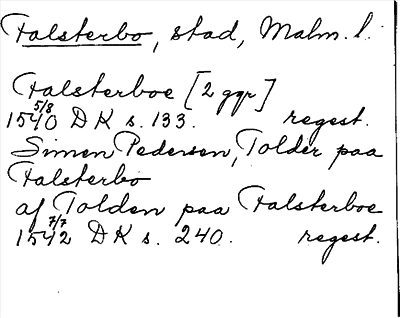 Falsterbo, stad, Malm. l.
Falsterboe [2 ggr]
1540 5/8 DK s. 133. regest.
Simen Pedersen, Tolder paa
Falsterbo
af Tolden paa Falsterboe
1542 7/7 DK s. 240. regest.